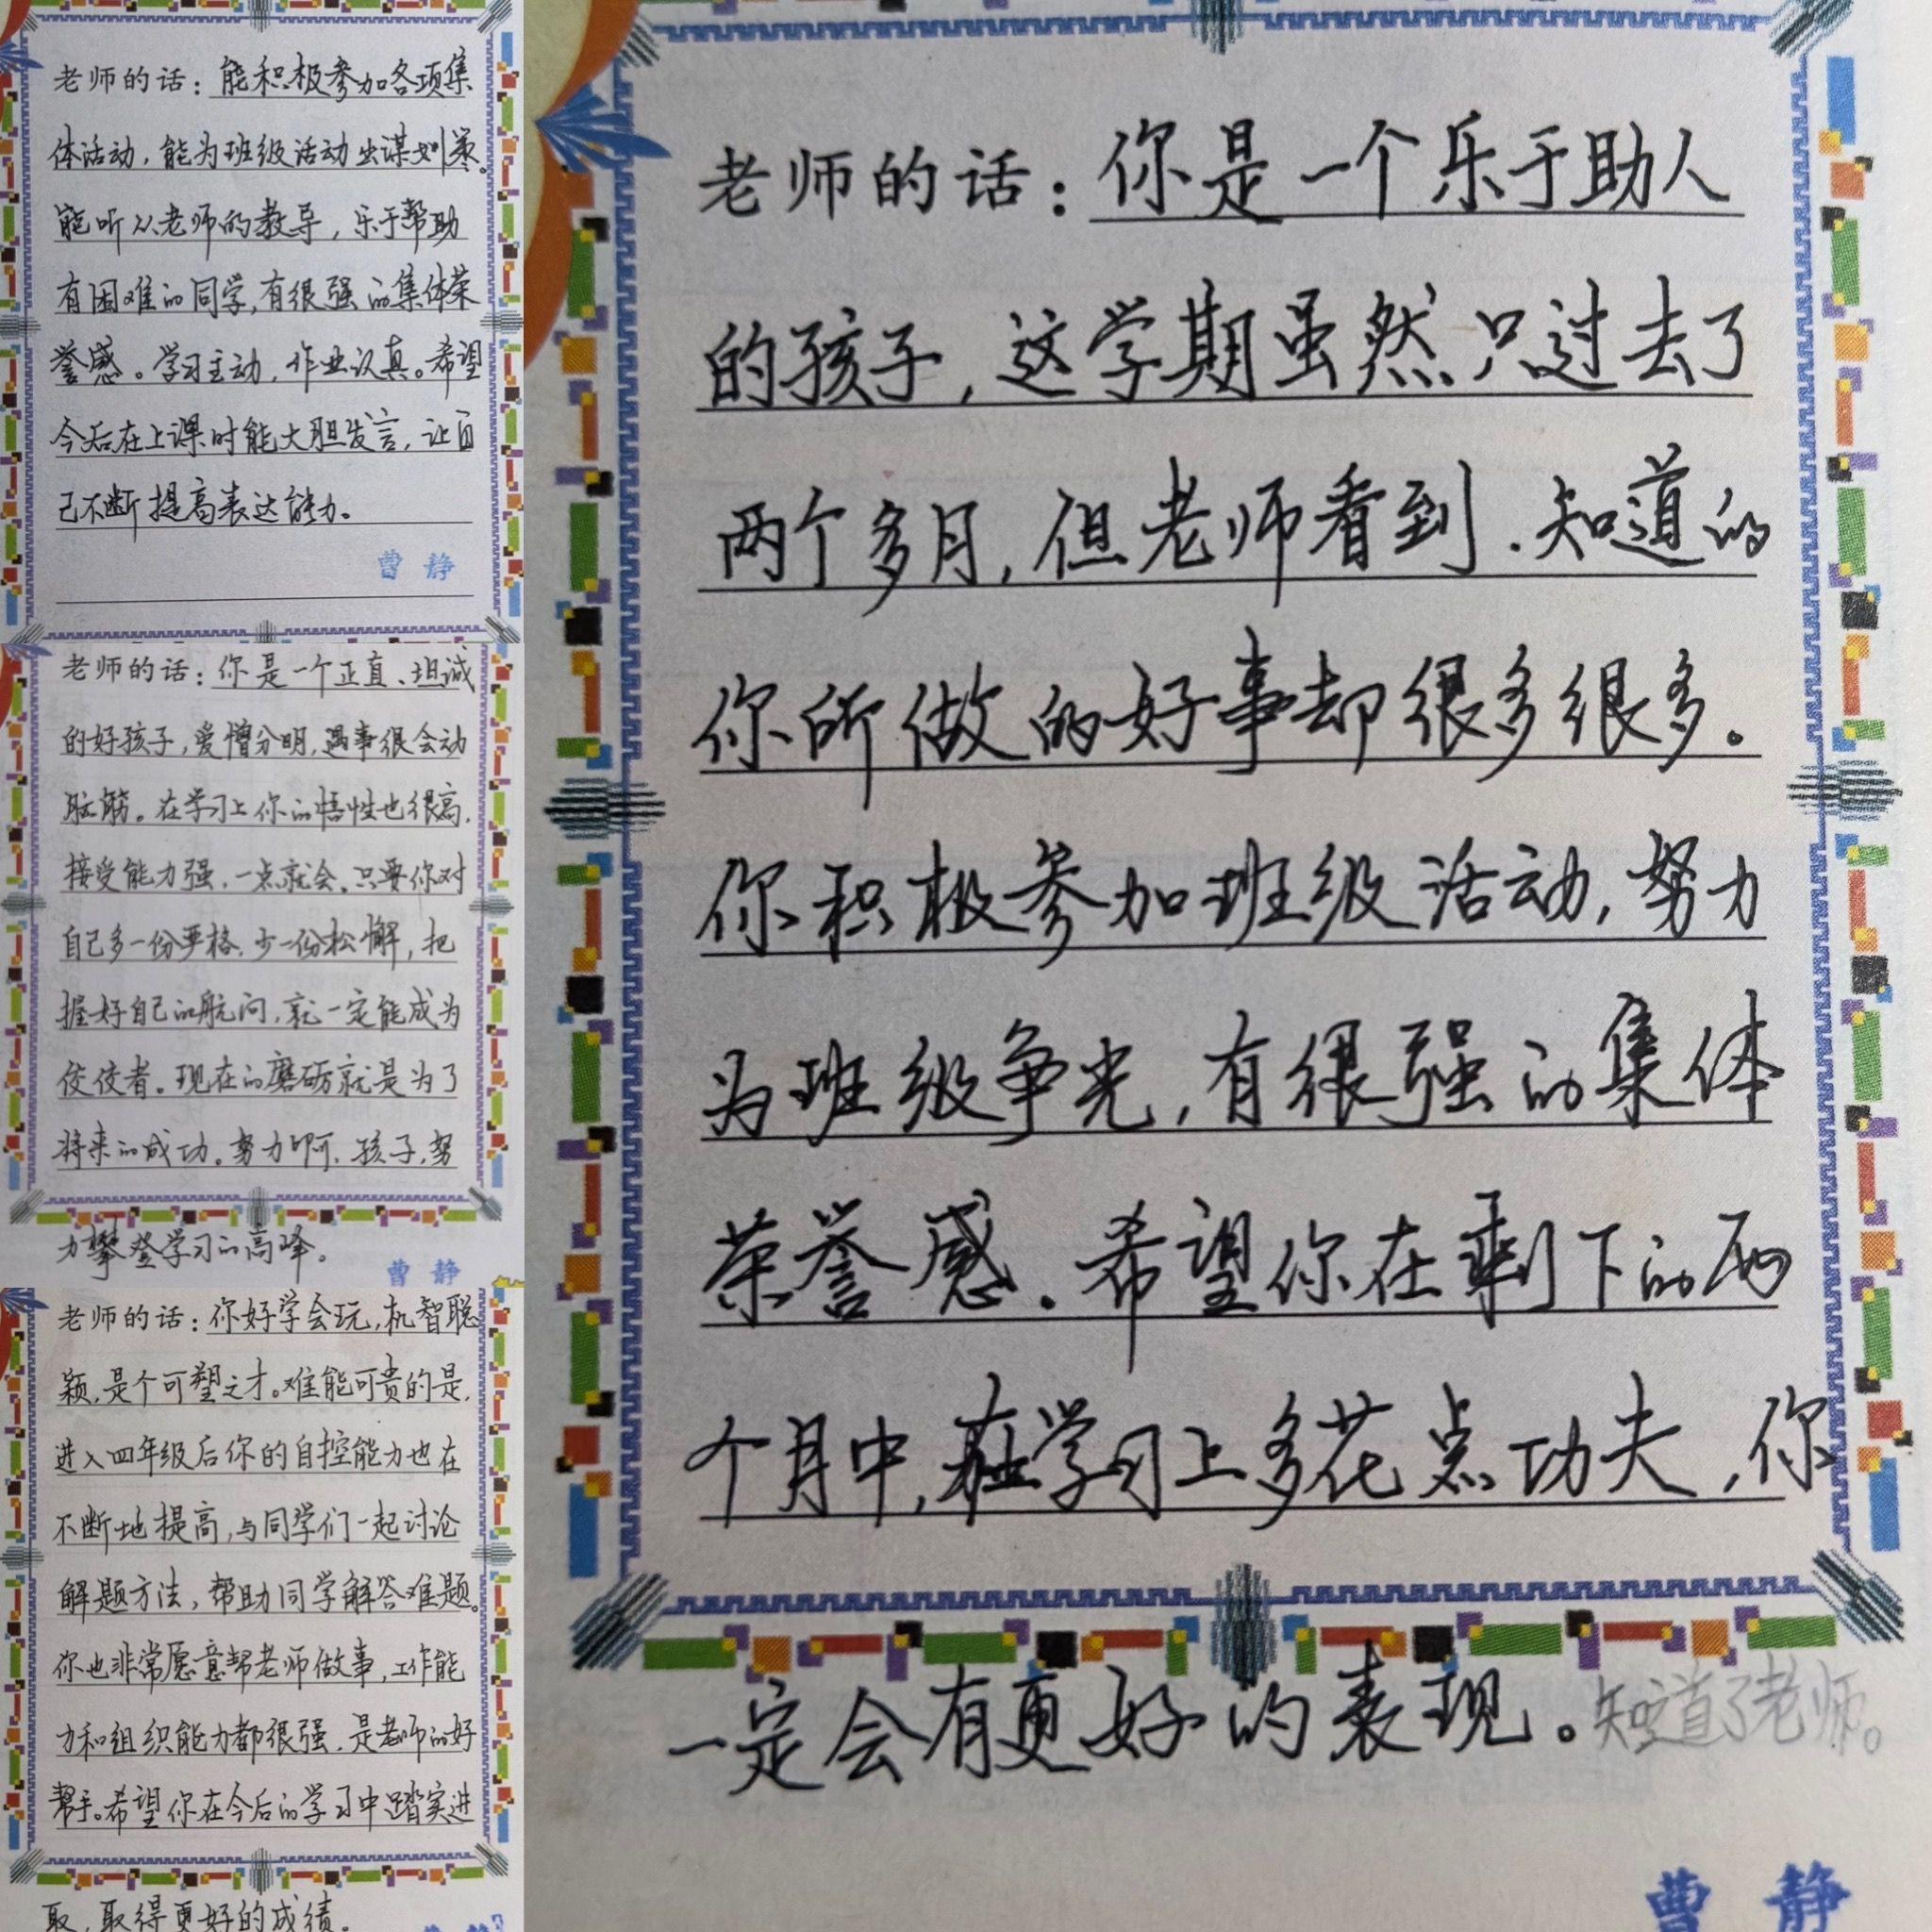 老师的话：能积极参加各项集
体活动，能为班级活动出谋划策。
能听从老师的教导，乐于帮助
有困难的同学，有很强的集体荣
誉感。学习主动，作业认真。希望
今后在上课时能大胆发言，让自
己不断提高表达能力。
曹静
老师的话：你是一个正直、坦诚
的好孩子，爱憎分明，遇事很会动
脑筋。在学习上你的悟性也很高，
接受能力强，一点就会，只要你对
自己多一份严格，少一份松懈，把
握好自己的航向，就一定能成为
佼佼者。现在的磨砺就是为了
将来的成功。努力啊，孩子，努
力攀登学习的高峰。
曹静
老师的话：你好学会玩，机智聪
颖，是个可塑之才。难能可贵的是，
进入四年级后你的自控能力也在
不断地提高，与同学们一起讨论
解题方法，帮助同学解答难题。
你也非常愿意帮老师做事，工作能
力和组织能力都很强，是老师的好
帮手。希望你在今后的学习中踏实进
取，取得更好的成绩。
老师的话：你是一个乐于助人
的孩子，这学期虽然只过去了
两个多月，但老师看到、知道的
你所做的好事却很多很多。
你积极参加班级活动，努力
为班级争光，有很强的集体
荣誉感。希望你在剩下的两
个月中，在学习上多花点功夫，你
一定会有更好的表现。知道了老师。
曹静